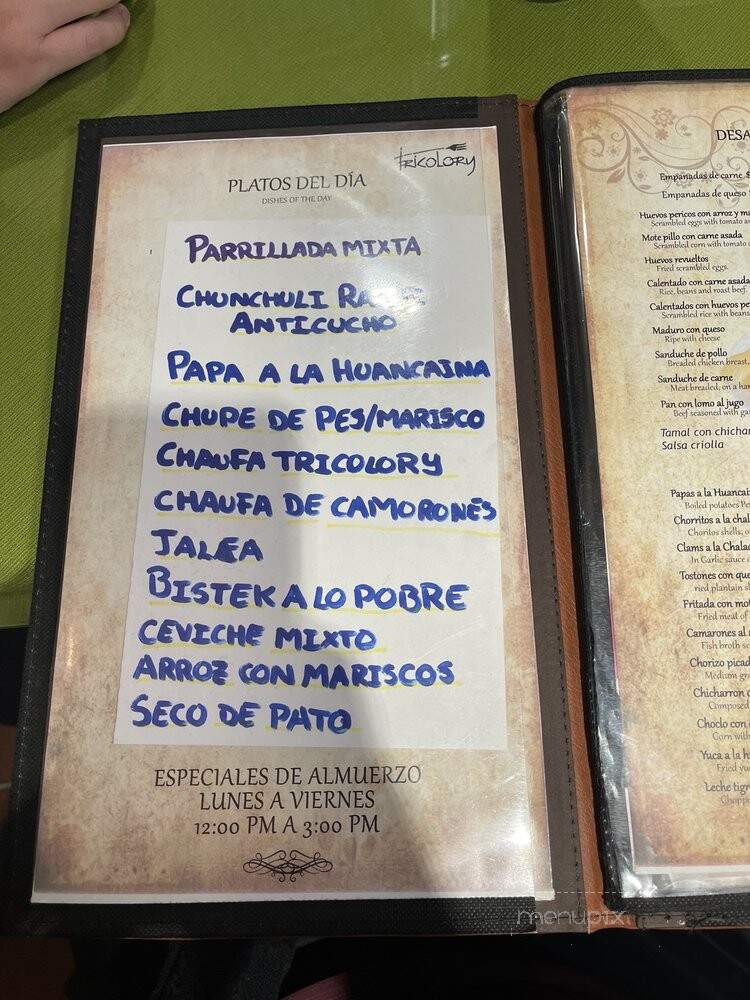 TRICOLORY
PLATOS DEL DÍA
DISHES OF THE DAY
PARRILLADA MIXTA
CHUNCHULI
ANTICUCHO
PAPA A LA HUANCAINA
CHUPE DE PES/MARISCO
CHAUFA TRICOLORY
CHAUFA DE CAMORONES
JALEA
BISTEK A LO POBRE
CEVICHE MIXTO
ARROZ CON MARISCOS
SECO DE PATO
ESPECIALES DE ALMUERZO
LUNES A VIERNES
12:00 PM A 3:00 PM
DESA
Empanadas de carne $
Empanadas de queso
Huevos pericos con arroz y ma
Scrambled eggs with tomato a
Mote pillo con carne asada
Scrambled corn with tomato
Huevos revueltos
Fried scrambled eggs.
Calentado con carne asada
Rice, beans and roast beef.
Calentados con huevos pe
Scrambled rice with beans
Maduro con queso
Ripe with cheese
Sanduche de pollo
Breaded chicken breast,
Sanduche de carne
Meat breaded, on a ha
Pan con lomo al jugo
Beef seasoned with ga
Tamal con chichar
Salsa criolla
Papas a la Huancai
Boiled potatoes Pe
Chorritos a la chal
Choritos shells, o
Clams a la Chalac
In Garlic sauce
Tostones con que
ried plantain s
Fritada con mot
Fried meat of
Camarones al
Fish broth
Chorizo picad
Medium gra
Chicharron
Composed
Choclo con
Corn with
Yuca a la h
Fried yuc
Leche tigr
Chopp
menupix